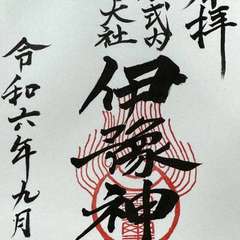 拝
式内
大社
伊豫神
令和六年九月